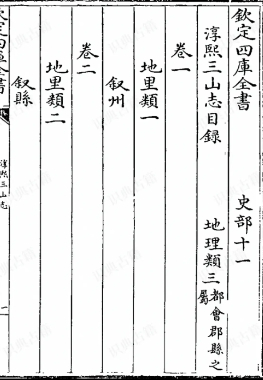 欽定四庫全書
史部十一
淳熙三山志目録
地理類三
都會郡縣之
屬
卷一
地里類一
叙州
卷二
地里類二
叙縣
欽定四庫全書
淳熙三山志